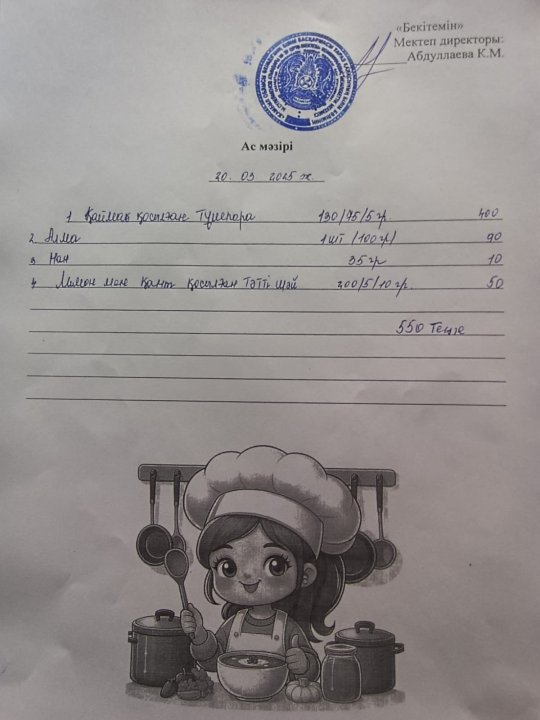 «Бекітемін»
Мектеп директоры:
Абдуллаева К.М.
Ас мәзірі
20. 03 2025 ж.
1 Қаймақ қосылған Тұшпара 130/75/5 гр 400
2 Алма 1 шт /100 гр/ 90
3 Нан 35 гр 10
4 Лимон мен қант қосылған тәтті шай 200/5/10 гр. 50
550 Теңге